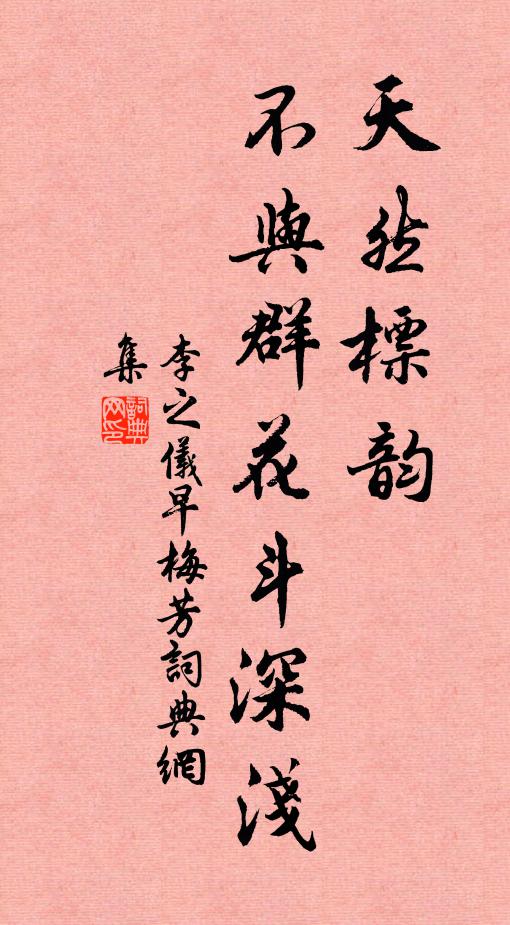 天然標韵
不與群花斗深淺
李之儀早梅芳詞典網
集
詞典
网印